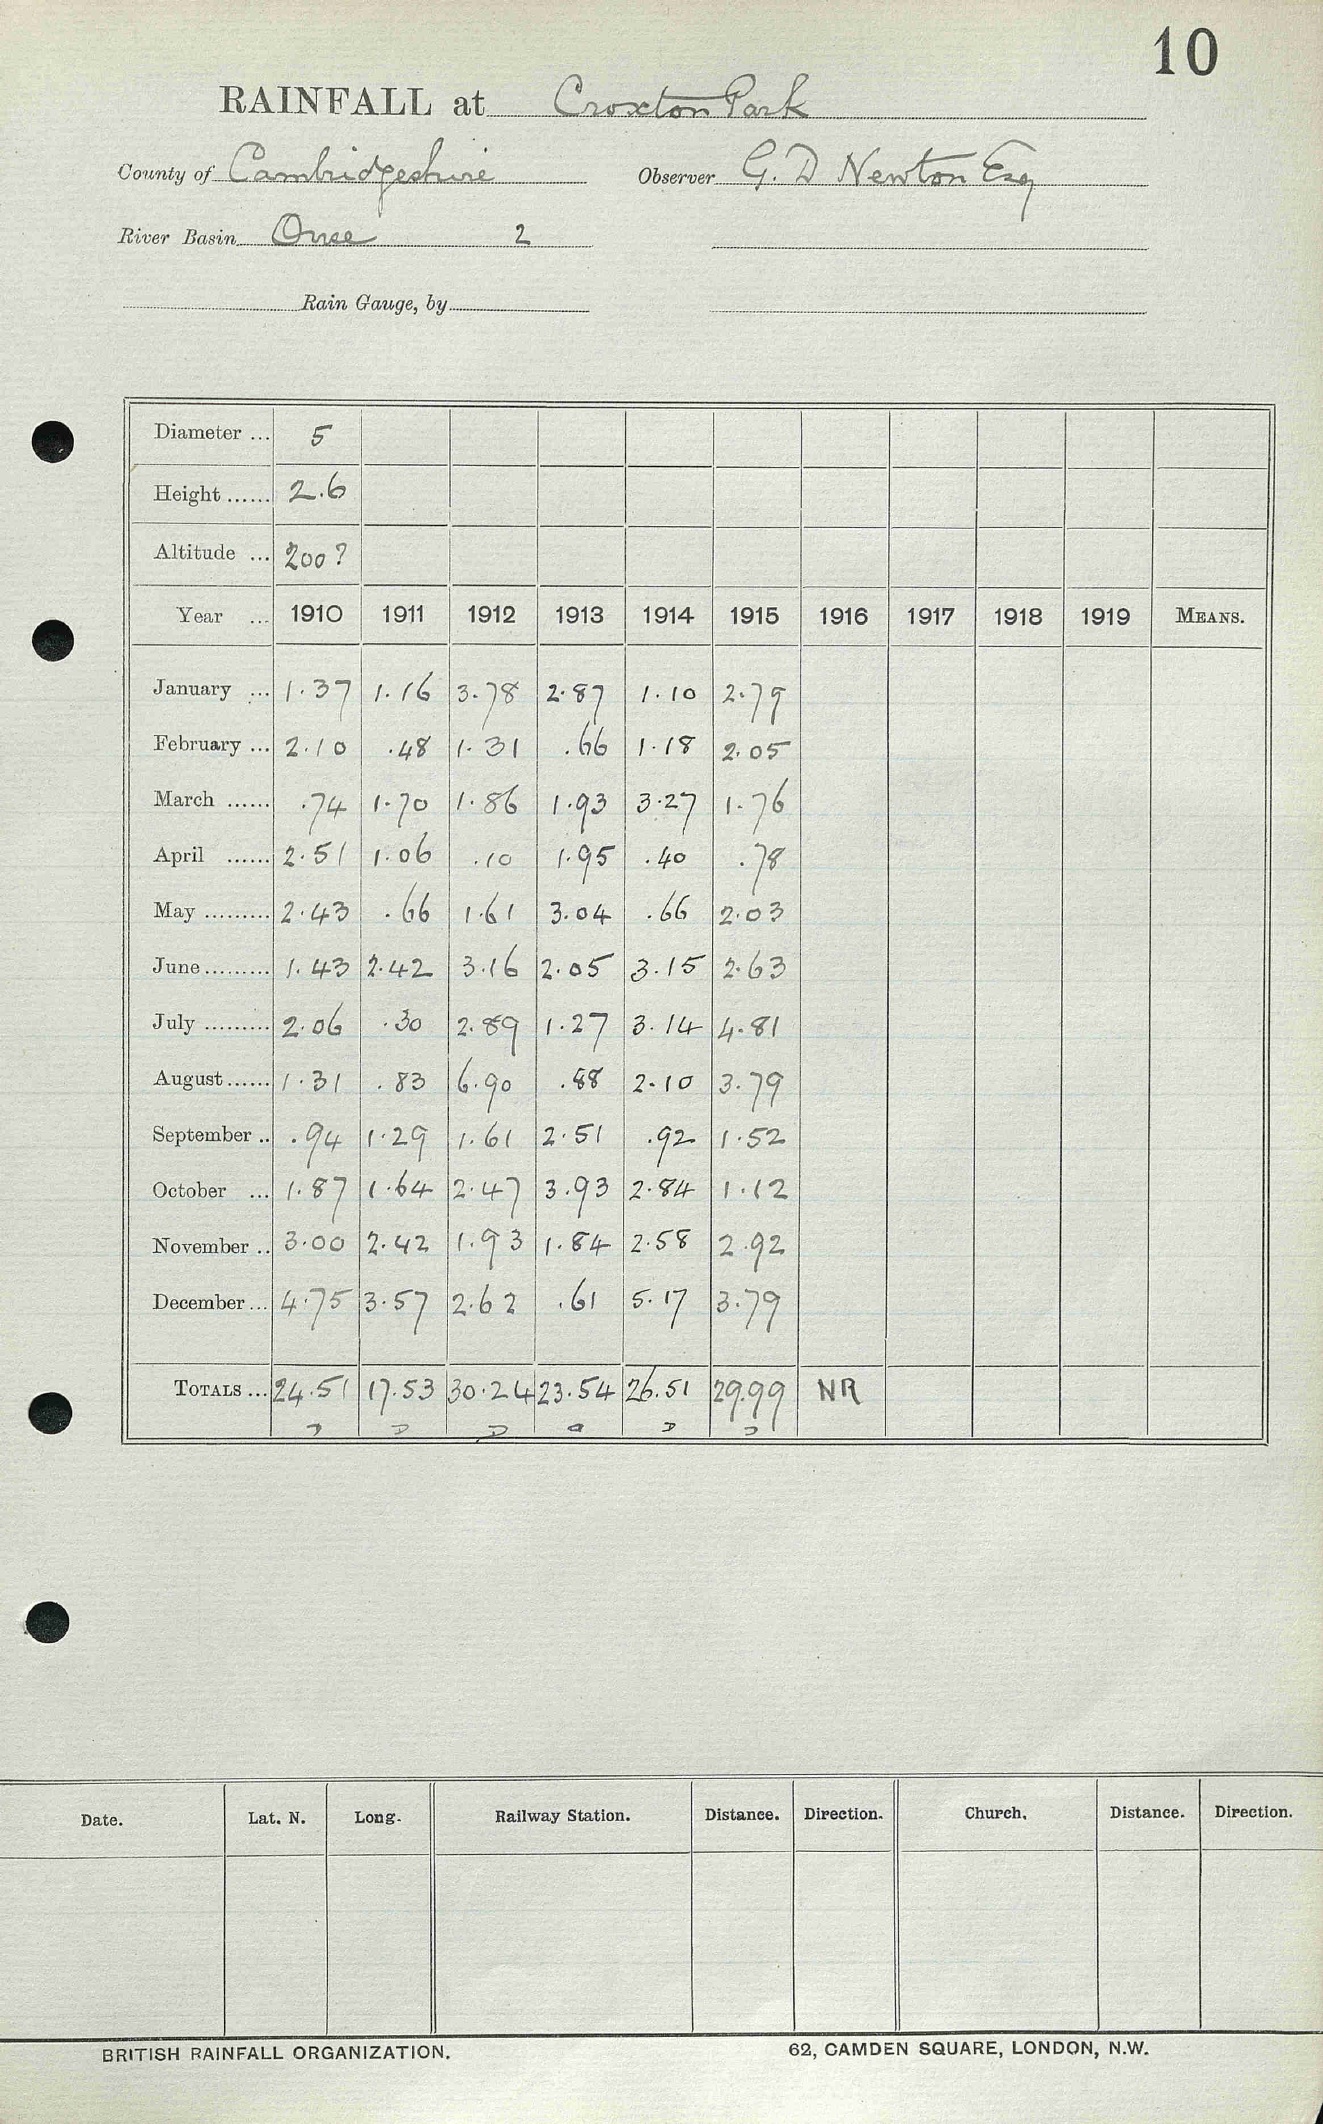 10
RAINFALL at Croxton Park
County of Cambridgeshire Observer G. D Newton Esq
River Basin Ouse 2
Rain Gauge, by
Diameter ... 5
Height ...... 2.6
Altitude ... 200?
Year ... 1910 1911 1912 1913 1914 1915 1916 1917 1918 1919 MEANS.
January ... 1.37 1.16 3.78 2.87 1.10 2.79
February ... 2.10 .48 1.31 .66 1.18 2.05
March ...... .74 1.70 1.86 1.93 3.27 1.76
April ...... 2.51 1.06 .10 1.95 .40 .78
May ......... 2.43 .66 1.61 3.04 .66 2.03
June ......... 1.43 2.42 3.16 2.05 3.15 2.63
July ......... 2.06 .30 2.89 1.27 3.14 4.81
August ...... 1.31 .83 6.90 .88 2.10 3.79
September .. .94 1.29 1.61 2.51 .92 1.52
October ... 1.87 1.64 2.47 3.93 2.84 1.12
November .. 3.00 2.42 1.93 1.84 2.58 2.92
December ... 4.75 3.57 2.62 .61 5.17 3.79
TOTALS ... 24.51 17.53 30.24 23.54 26.51 29.99 NR
Date. Lat. N. Long. Railway Station. Distance. Direction. Church. Distance. Direction.
BRITISH RAINFALL ORGANIZATION. 62, CAMDEN SQUARE, LONDON, N.W.